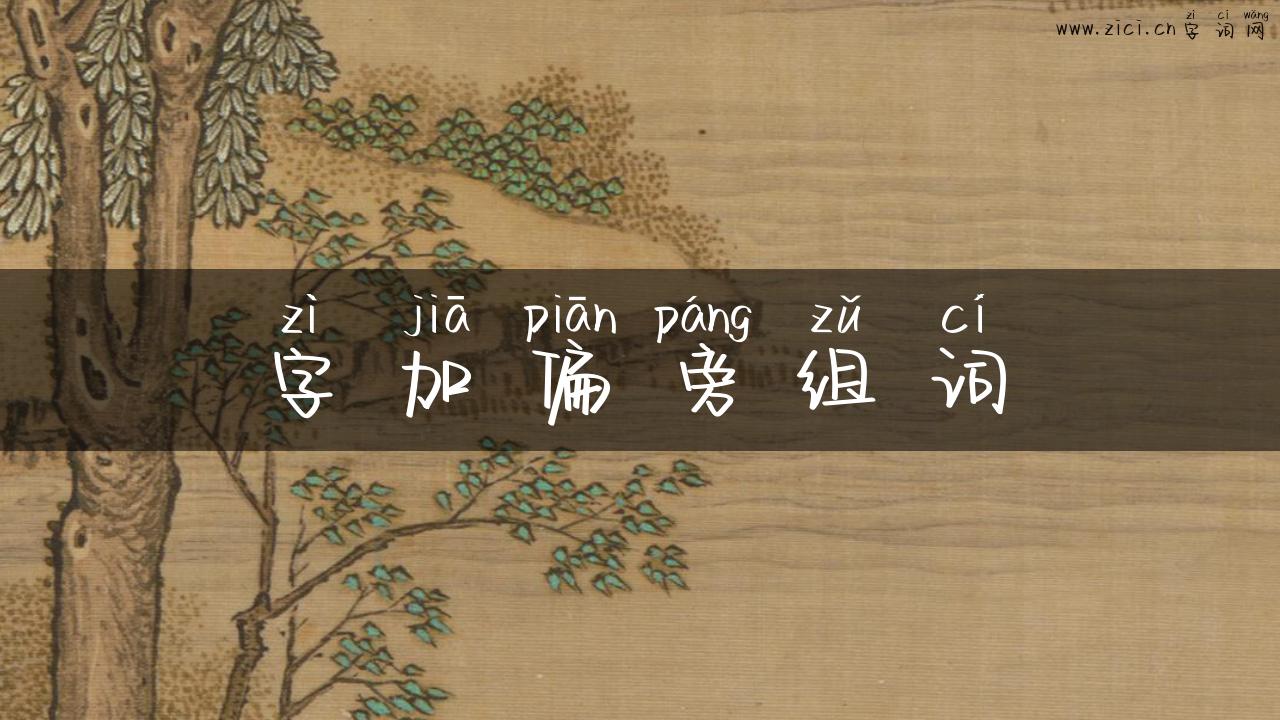 zì cí wǎng
www.zici.cn 字词网
zì jiā piān páng zǔ cí
字加偏旁组词